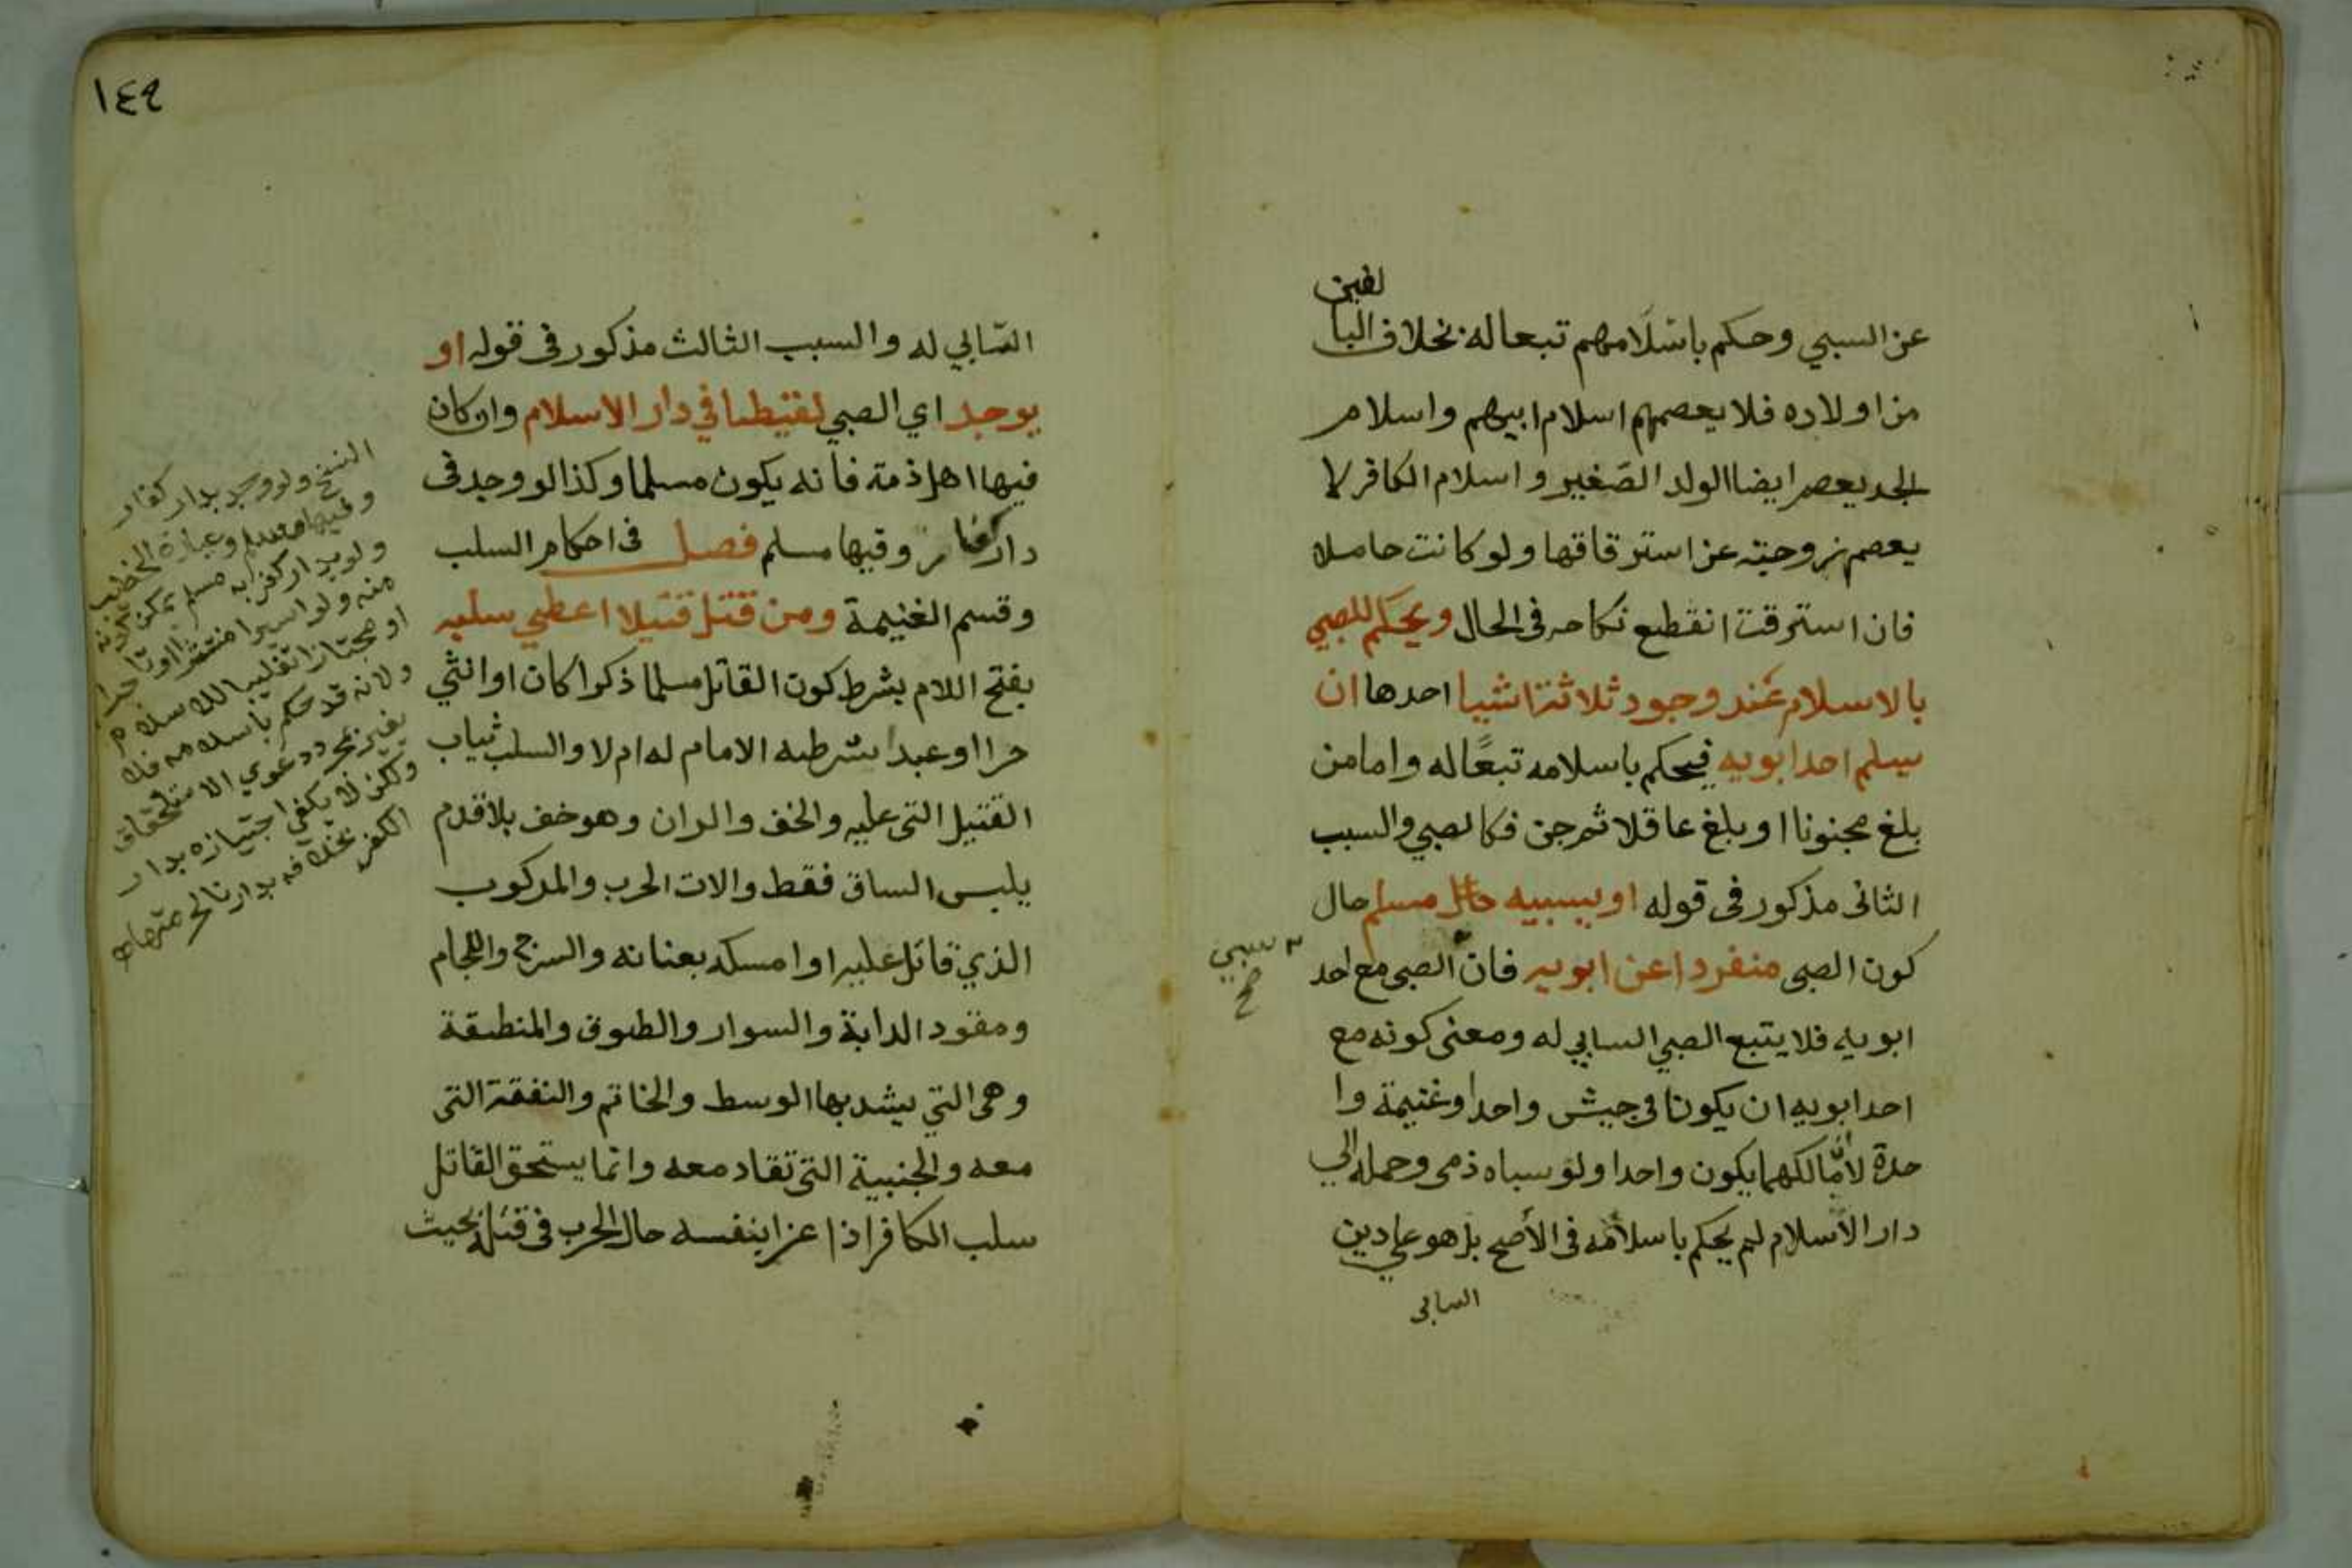 عن السبي وحكم باسلامهم تبعا له بخلاف البا
لغين
من اولاده فلا يعصمهم اسلام ابيهم واسلام
الجد يعصم ايضا الولد الصغير واسلام الكافر لا
يعصم زوجته عن استرقاقها ولو كانت حاملا
فان استرقت انقطع نكاحه فى الحال ويحكم للصبي
بالاسلام عند وجود ثلاثة اشيا احدها ان
يسلم احد ابويه فيحكم باسلامه تبعًا له واما من
بلغ مجنونا او بلغ عاقلا ثم جن فكالصبي والسبب
الثانى مذكور فى قوله او يسبيه مسلم حال
كون الصبى منفردا عن ابويه فان الصبى مع احد
سبي
صح
ابويه فلا يتبع الصبي السابي له ومعنى كونه مع
احد ابويه ان يكونا فى جيش واحد وغنيمة وا
حدة لا أن مالكهما يكون واحدا ولو سباه ذمى وحمله الي
دار الاسلام لم يحكم باسلامه فى الأصح بل هو علي دين
السابى
١٤٩
السّابي له والسبب الثالث مذكور فى قوله او
يوجد اي الصبي لقيطا في دار الاسلام وان كان
فيها اهل ذمة فانه يكون مسلما وكذا لو وجد فى
دار كفار وفيها مسلم فصل فى احكام السلب
وقسم الغنيمة ومن قتل قتيلا اعطي سلبه
بفتح اللام بشرط كون القاتل مسلما ذكرا كان او انثي
حرا او عبدا شرطه الامام له ام لا والسلب ثياب
القتيل التى عليه والخف والران وهو خف بلا قدم
يلبس الساق فقط والات الحرب والمركوب
الذي قاتل عليه او امسكه بعنانه والسرج واللجام
ومقود الدابة والسوار والطوق والمنطقة
وهى التي يشد بها الوسط والخاتم والنفقة التى
معه والجنيبة التى تقاد معه وانما يستحق القاتل
سلب الكافر اذا غزا بنفسه حال الحرب فى قتله بحيث
النسخ ولو وجد بدار كفار
وفيها مسلم وعبارة الخطيب
ولو بدار كفر به مسلم يمكن كونه
منه ولو اسيرا منتشرا او تاجرا
او مجتازا تغليبا للاسلام
ولانه قد حكم باسلامه فلا
يغير بمجرد دعوي الاستلحاق
ولكن لا يكفي اجتيازه بدار
الكفر بخلافه بدارنا لحرمتها